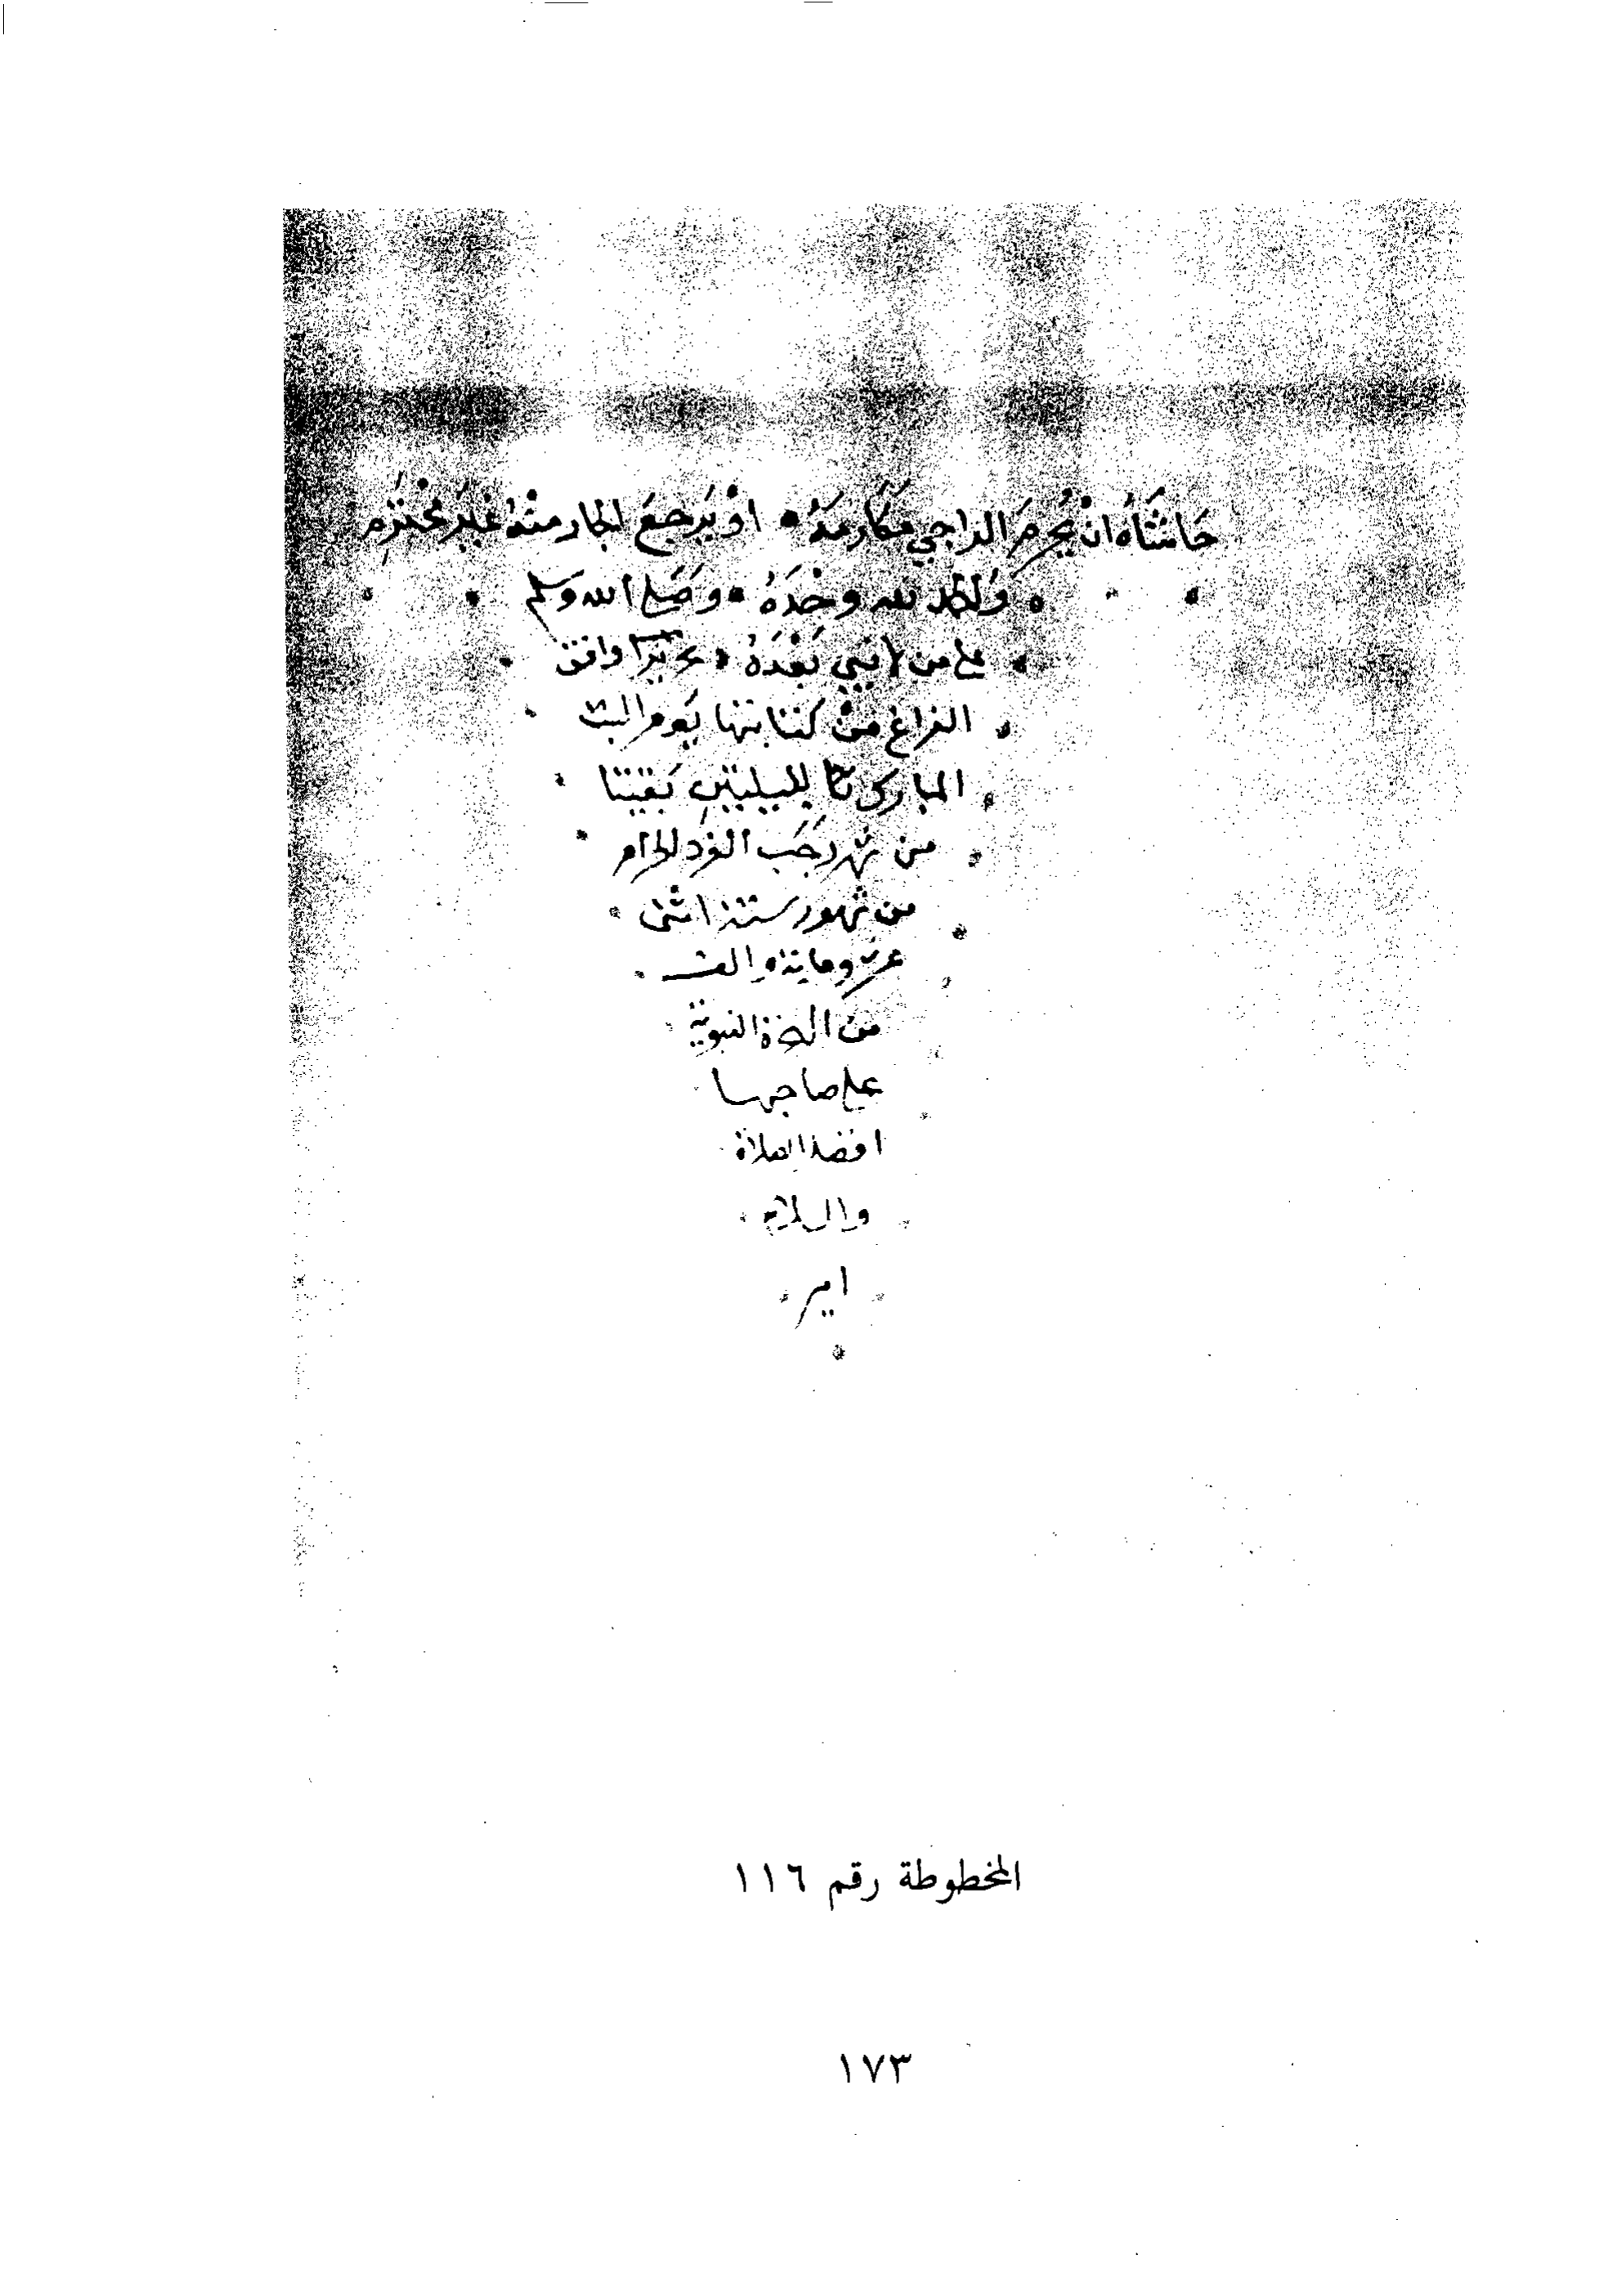 حَاشَاهُ انْ يُحْرِمَ الراجي مَكَارِمَهُ • اوْ يَرجعَ الجار منْهُ غَيرَ مُحْتَرَمِ
• وَالحمد لله وحْدَهُ • وصَلى الله وَسلم
على من لا نبي بَعْدَهُ • وافق
الفراغ من كتابتها يَوم السبت
المبارك لليلتين بَقيتا
من شهر رَجَب الفرد الحرام
من شهور سنة اثنى
عشر وماية والف
من الهجرة النبوية
على صاحبها
افضل الصلاة
والسلام
امين
المخطوطة رقم ١١٦
١٧٣